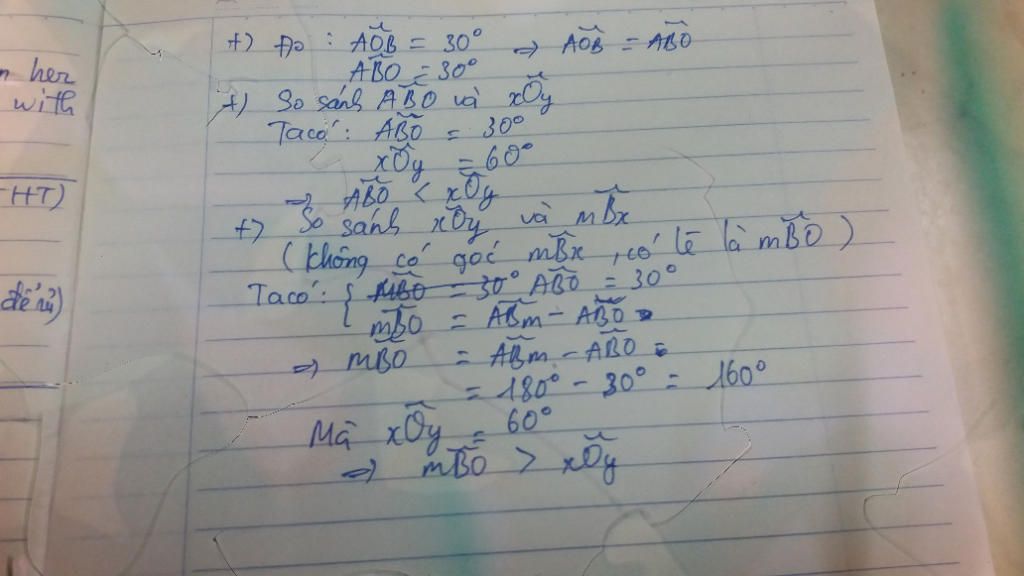 n her
with
HT)
+) Đo : AOB = 30° => AOB = ABO
ABO = 30°
+) So sánh ABO và xOy
Ta có: ABO = 30°
xOy = 60°
=> ABO < xOy
+) So sánh xOy và mBx
(không có góc mBx, có lẽ là mBO)
Ta có: { ABO = 30°
mBO = ABm - ABO
=> mBO = ABm - ABO =
= 180° - 30° = 160°
Mà xOy = 60°
=> mBO > xOy